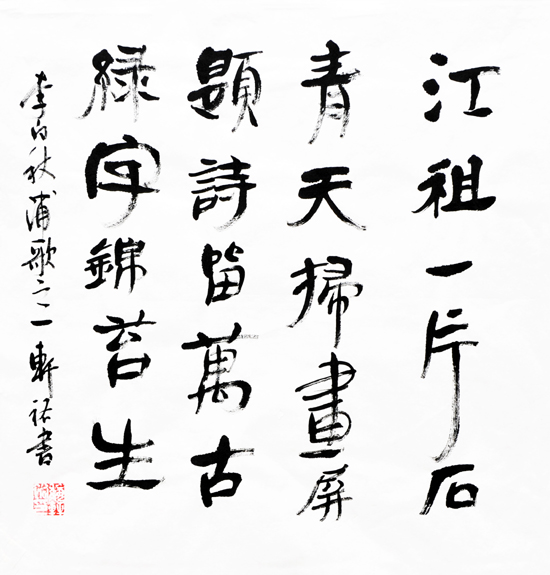 江祖一片石
青天掃畫屏
題詩留萬古
綠字錦苔生
李白秋浦歌之一軒祐書